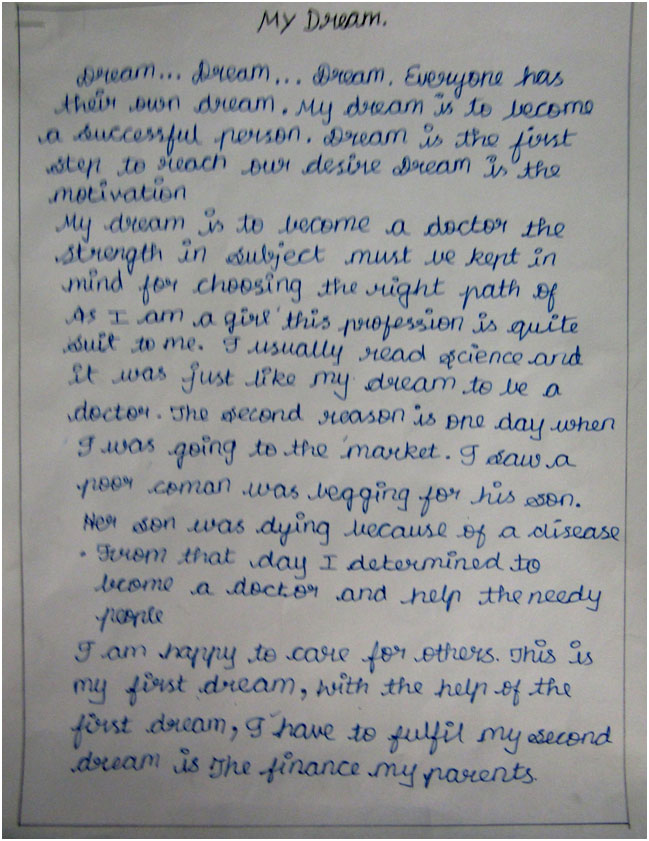 My Dream.
Dream... Dream... Dream. Everyone has
their own dream. My dream is to become
a successful person. Dream is the first
step to reach our desire Dream is the
motivation
My dream is to become a doctor the
strength in subject must be kept in
mind for choosing the right path of
As I am a girl this profession is quite
suit to me. I usually read science and
it was just like my dream to be a
doctor. The second reason is one day when
I was going to the market. I saw a
poor coman was begging for his son.
Her son was dying because of a disease
. From that day I determined to
become a doctor and help the needy
people
I am happy to care for others. This is
my first dream, with the help of the
first dream, I have to fulfil my second
dream is the finance my parents.